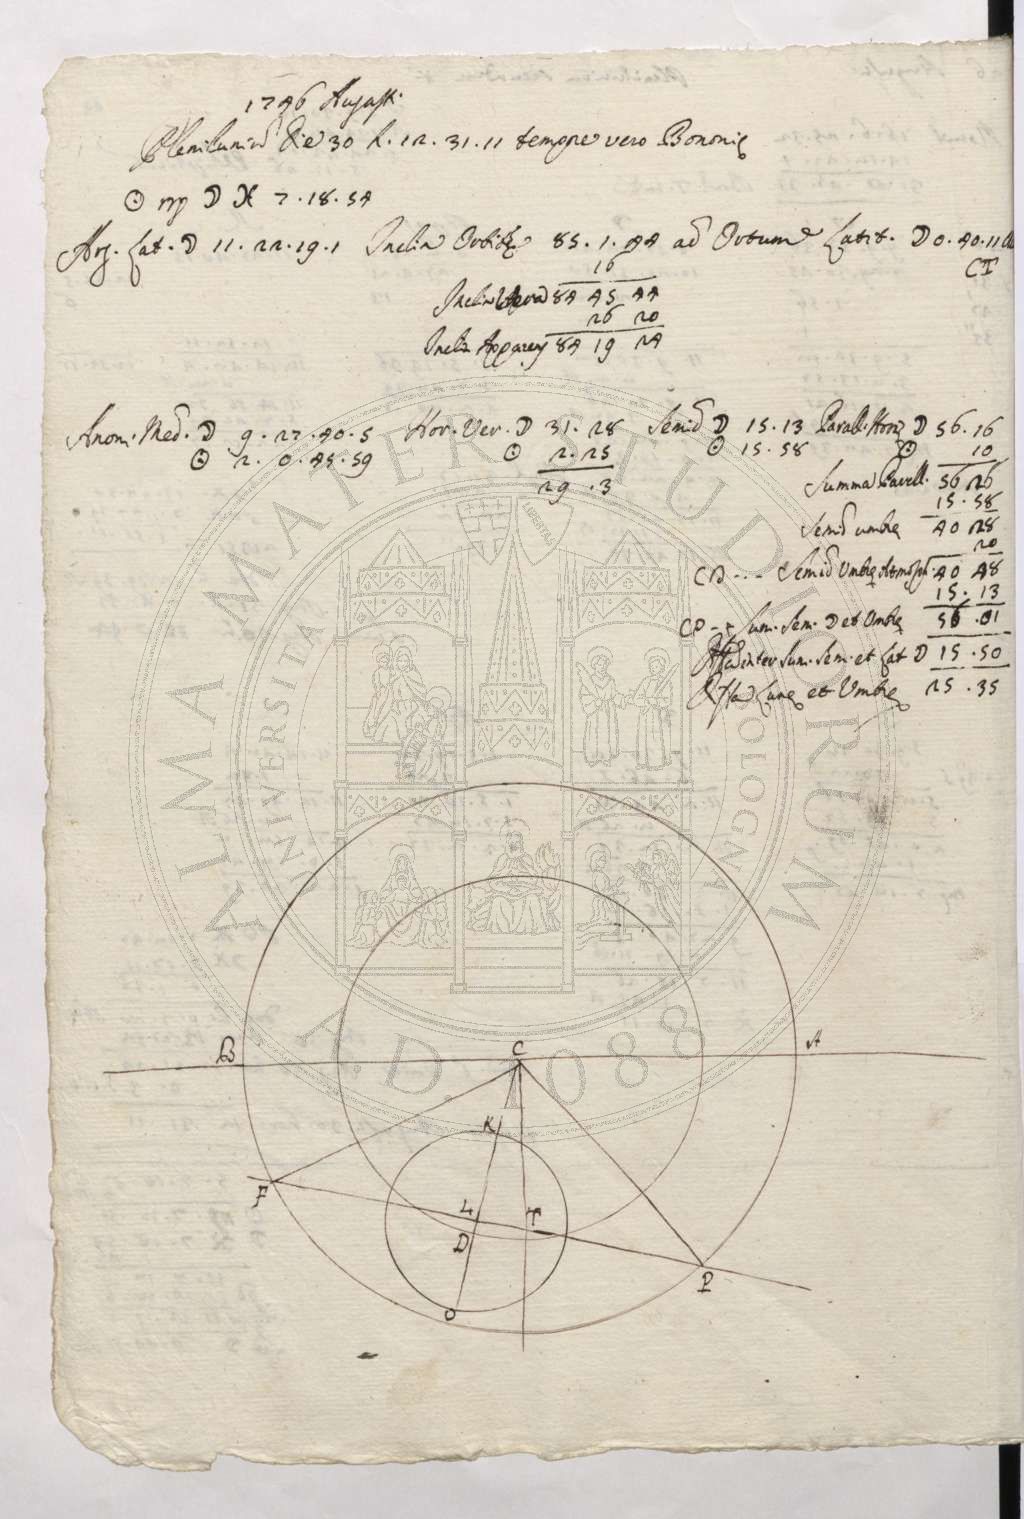 1746 August.
Plenilunium Die 30 h. 12. 31. 11 tempore vero Bononię
☉ ♍ ☽ ♓ 7. 18. 54
Arg. Lat. ☽ 11. 22. 19. 1 Inclin Orbitę 85. 1. 44 ad Ortum Latit. ☽ 0. 40. 11
CT
16
Inclin 84 45 44
26 20
Inclin Apparens 84 19 24
Anom. Med. ☽ 9. 27. 40. 5 Hor. Ver. ☽ 31. 28 Semid ☽ 15. 13 Parall. Horiz ☽ 56. 16
☉ 2. 0. 45. 59 ☉ 2. 25 ☉ 15. 58 ☉ 10
29. 3 Summa Parall. 56 26
15. 58
Semid umbrę 40 28
20
CB --- Semid Umbrę Atmosph 40 48
15. 13
CP -- Sum. Sem. ☽ et Umbrę 56. 01
Diffa inter Sum. Sem. et Lat ☽ 15. 50
Diffa Lunę et Umbrę 25. 35
ALMA MATER STUDIORUM
UNIVERSITÀ DI BOLOGNA
LIBERTAS
A.D. 1088
B C A
K
F L T
D
P
O